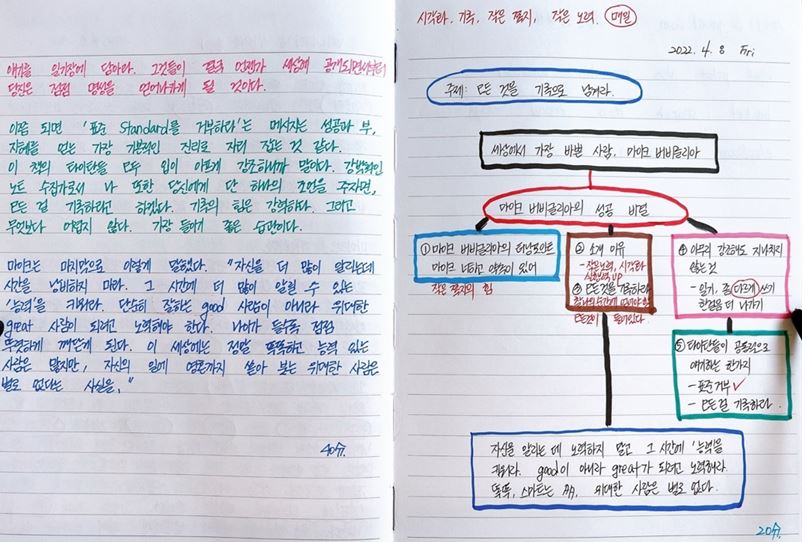 얘기를 일기장에 담아라. 그것들이 결국 언젠가 세상에 공개되면서부터
당신은 점점 명성을 얻어나가게 될 것이다.
이쯤 되면 '표준 Standard를 거부하라'는 메시지는 성공과 부,
지혜를 얻는 가장 기본적인 진리로 자리 잡는 것 같다.
이 책의 타이탄들 모두 입이 아프게 강조하니까 말이다. 강박적인
노트 수집가로서 나 또한 당신에게 단 하나의 조언을 주자면,
모든 걸 기록하라고 하겠다. 기록의 힘은 강력하다. 그리고
무엇보다 어렵지 않다. 가장 들이기 좋은 습관이다.
마이크는 마지막으로 이렇게 말했다. "자신을 더 많이 알리는데
시간을 낭비하지 마라. 그 시간에 더 많이 알릴 수 있는
'능력'을 키워라. 단순히 잘하는 good 사람이 아니라 위대한
great 사람이 되려고 노력해야 한다. 나이가 들수록 점점
뚜렷하게 깨닫게 된다. 이 세상에는 정말 똑똑하고 능력 있는
사람은 많지만, 자신의 일에 영혼까지 쏟아 붓는 위대한 사람은
별로 없다는 사실을."
40쉬.
시각화, 기록, 작은 쪽지, 작은 노력. 매일
2022. 4. 8 Fri
주제: 모든 것을 기록으로 남겨라.
세상에서 가장 바쁜 사람, 마이크 버비글리아
마이크 버비글리아의 성공 비결
① 마이크 버비글리아의
마이크 노트라고 있어
작은 쪽지의 힘
② 소개 이유
- 작은노력, 시각화
UP
③ 모든 것을 기록하라
모든것이 들어있다
④ 아무리 강조해도 지나치지
않는 것
- 일기, 좀 다르게 쓰기
한걸음 더 나가기
⑤ 타이탄들이 공통적으로
얘기하는 한가지
- 표준 거부 ✓
- 모든 걸 기록하라.
자신을 알리는 데 노력하지 말고 그 시간에 '능력'을
키워라. good이 아니라 great가 되려고 노력해라.
똑똑, 스마트는 많지, 위대한 사람은 별로 없다.
20쉬.